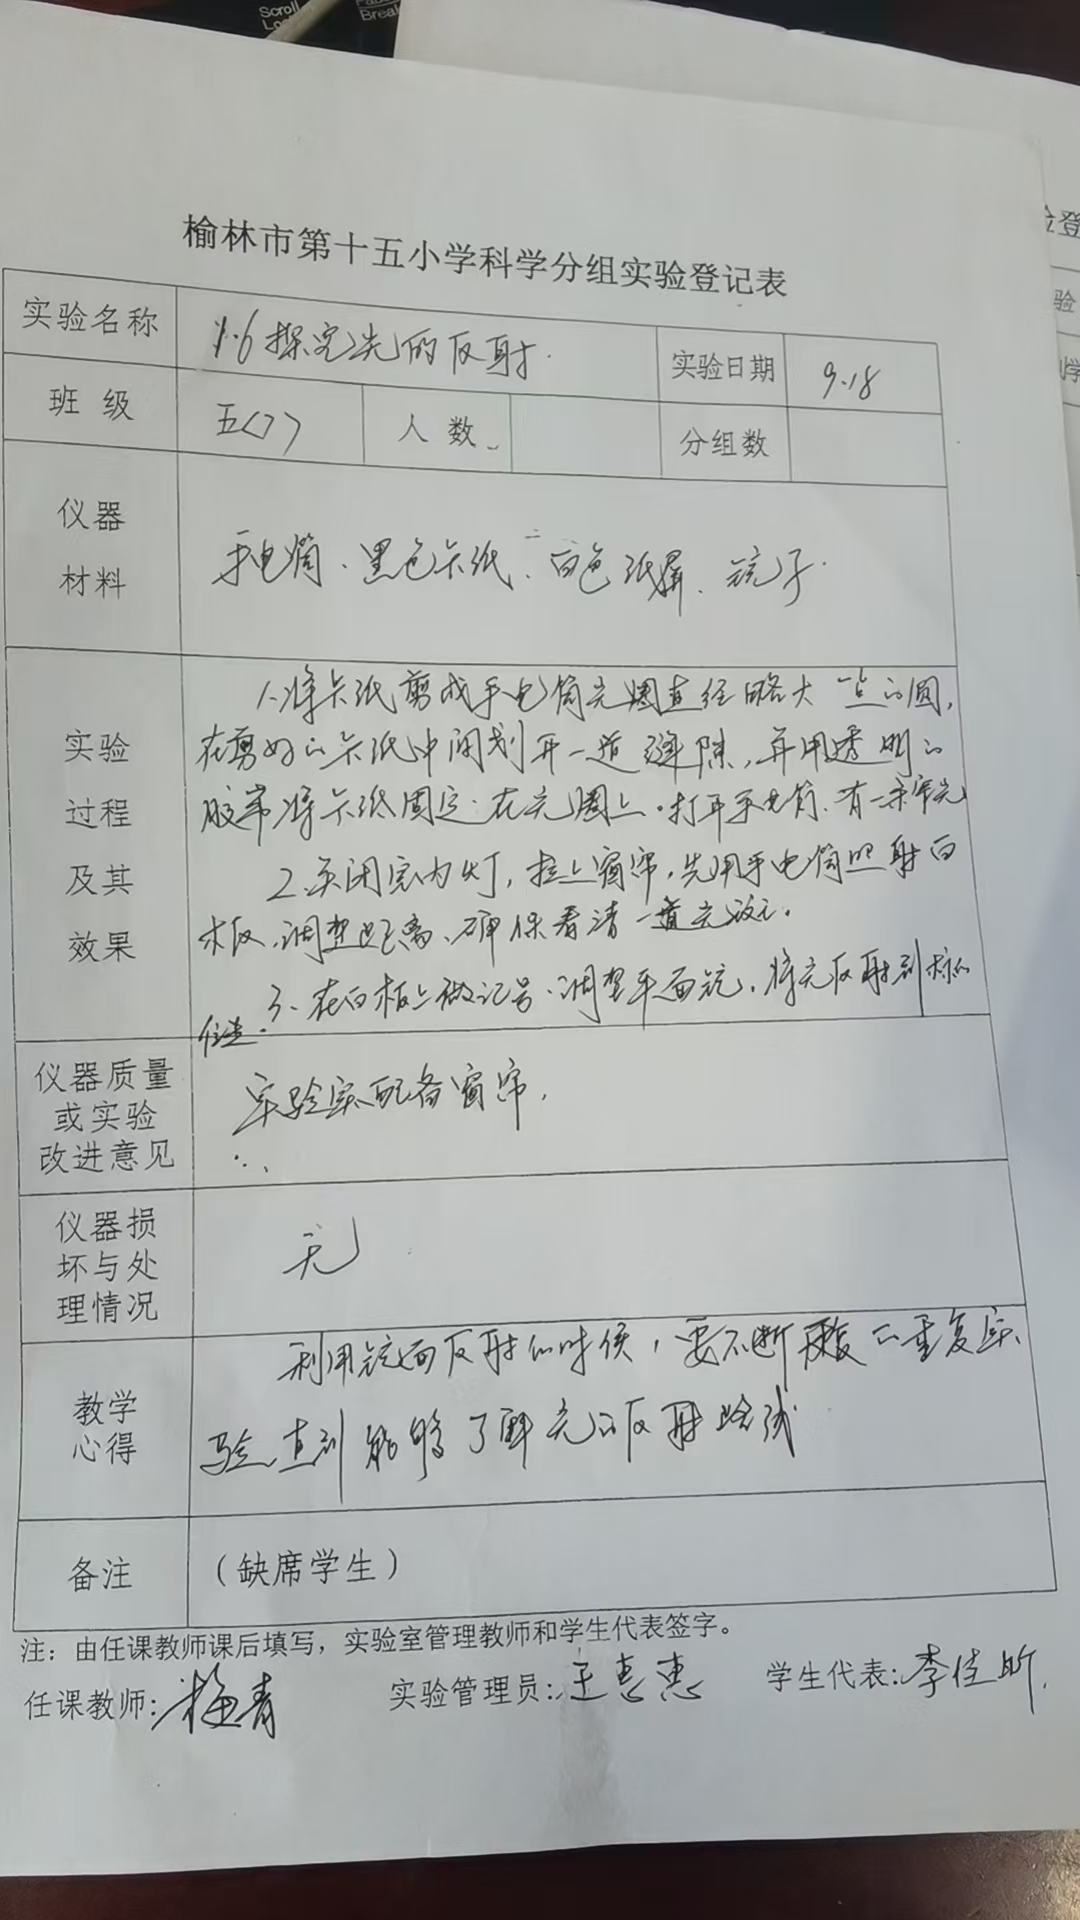 Scroll
Lock
Break
榆林市第十五小学科学分组实验登记表
实验名称
1.6探究光的反射.
实验日期
9.18
班 级
五(7)
人 数
分组数
仪器
材料
手电筒、黑色卡纸、白色纸屏、镜子.
实验
过程
及其
效果
1.将卡纸剪成手电筒光圈直径略大一点的圆,
在剪好的卡纸中间划开一道缝隙,并用透明的
胶带将卡纸固定在光圈上.打开手电筒.有一束窄光
2.关闭室内灯,拉上窗帘,先用手电筒照射白
木板.调整距离、确保看清一道光
3.在白板上做记号.调整平面镜,将光反射到
仪器质量
或实验
改进意见
实验室配备窗帘,
仪器损
坏与处
理情况
无
教学
心得
利用镜面反射的时候,要不断的重复实
验,直到能够了解光的反射路线
备注
(缺席学生)
注:由任课教师课后填写,实验室管理教师和学生代表签字。
任课教师: 梅青
实验管理员: 王惠惠
学生代表: 李佳昕.
验登
验